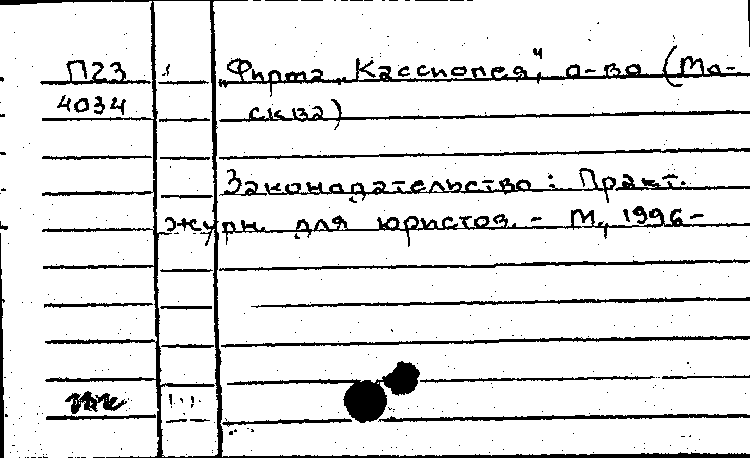 П23 „Фирма „Кассиопея“, о-во (Мо-
4034 сква)
Законодательство: Практ.
журн. для юристов. - М., 1996-